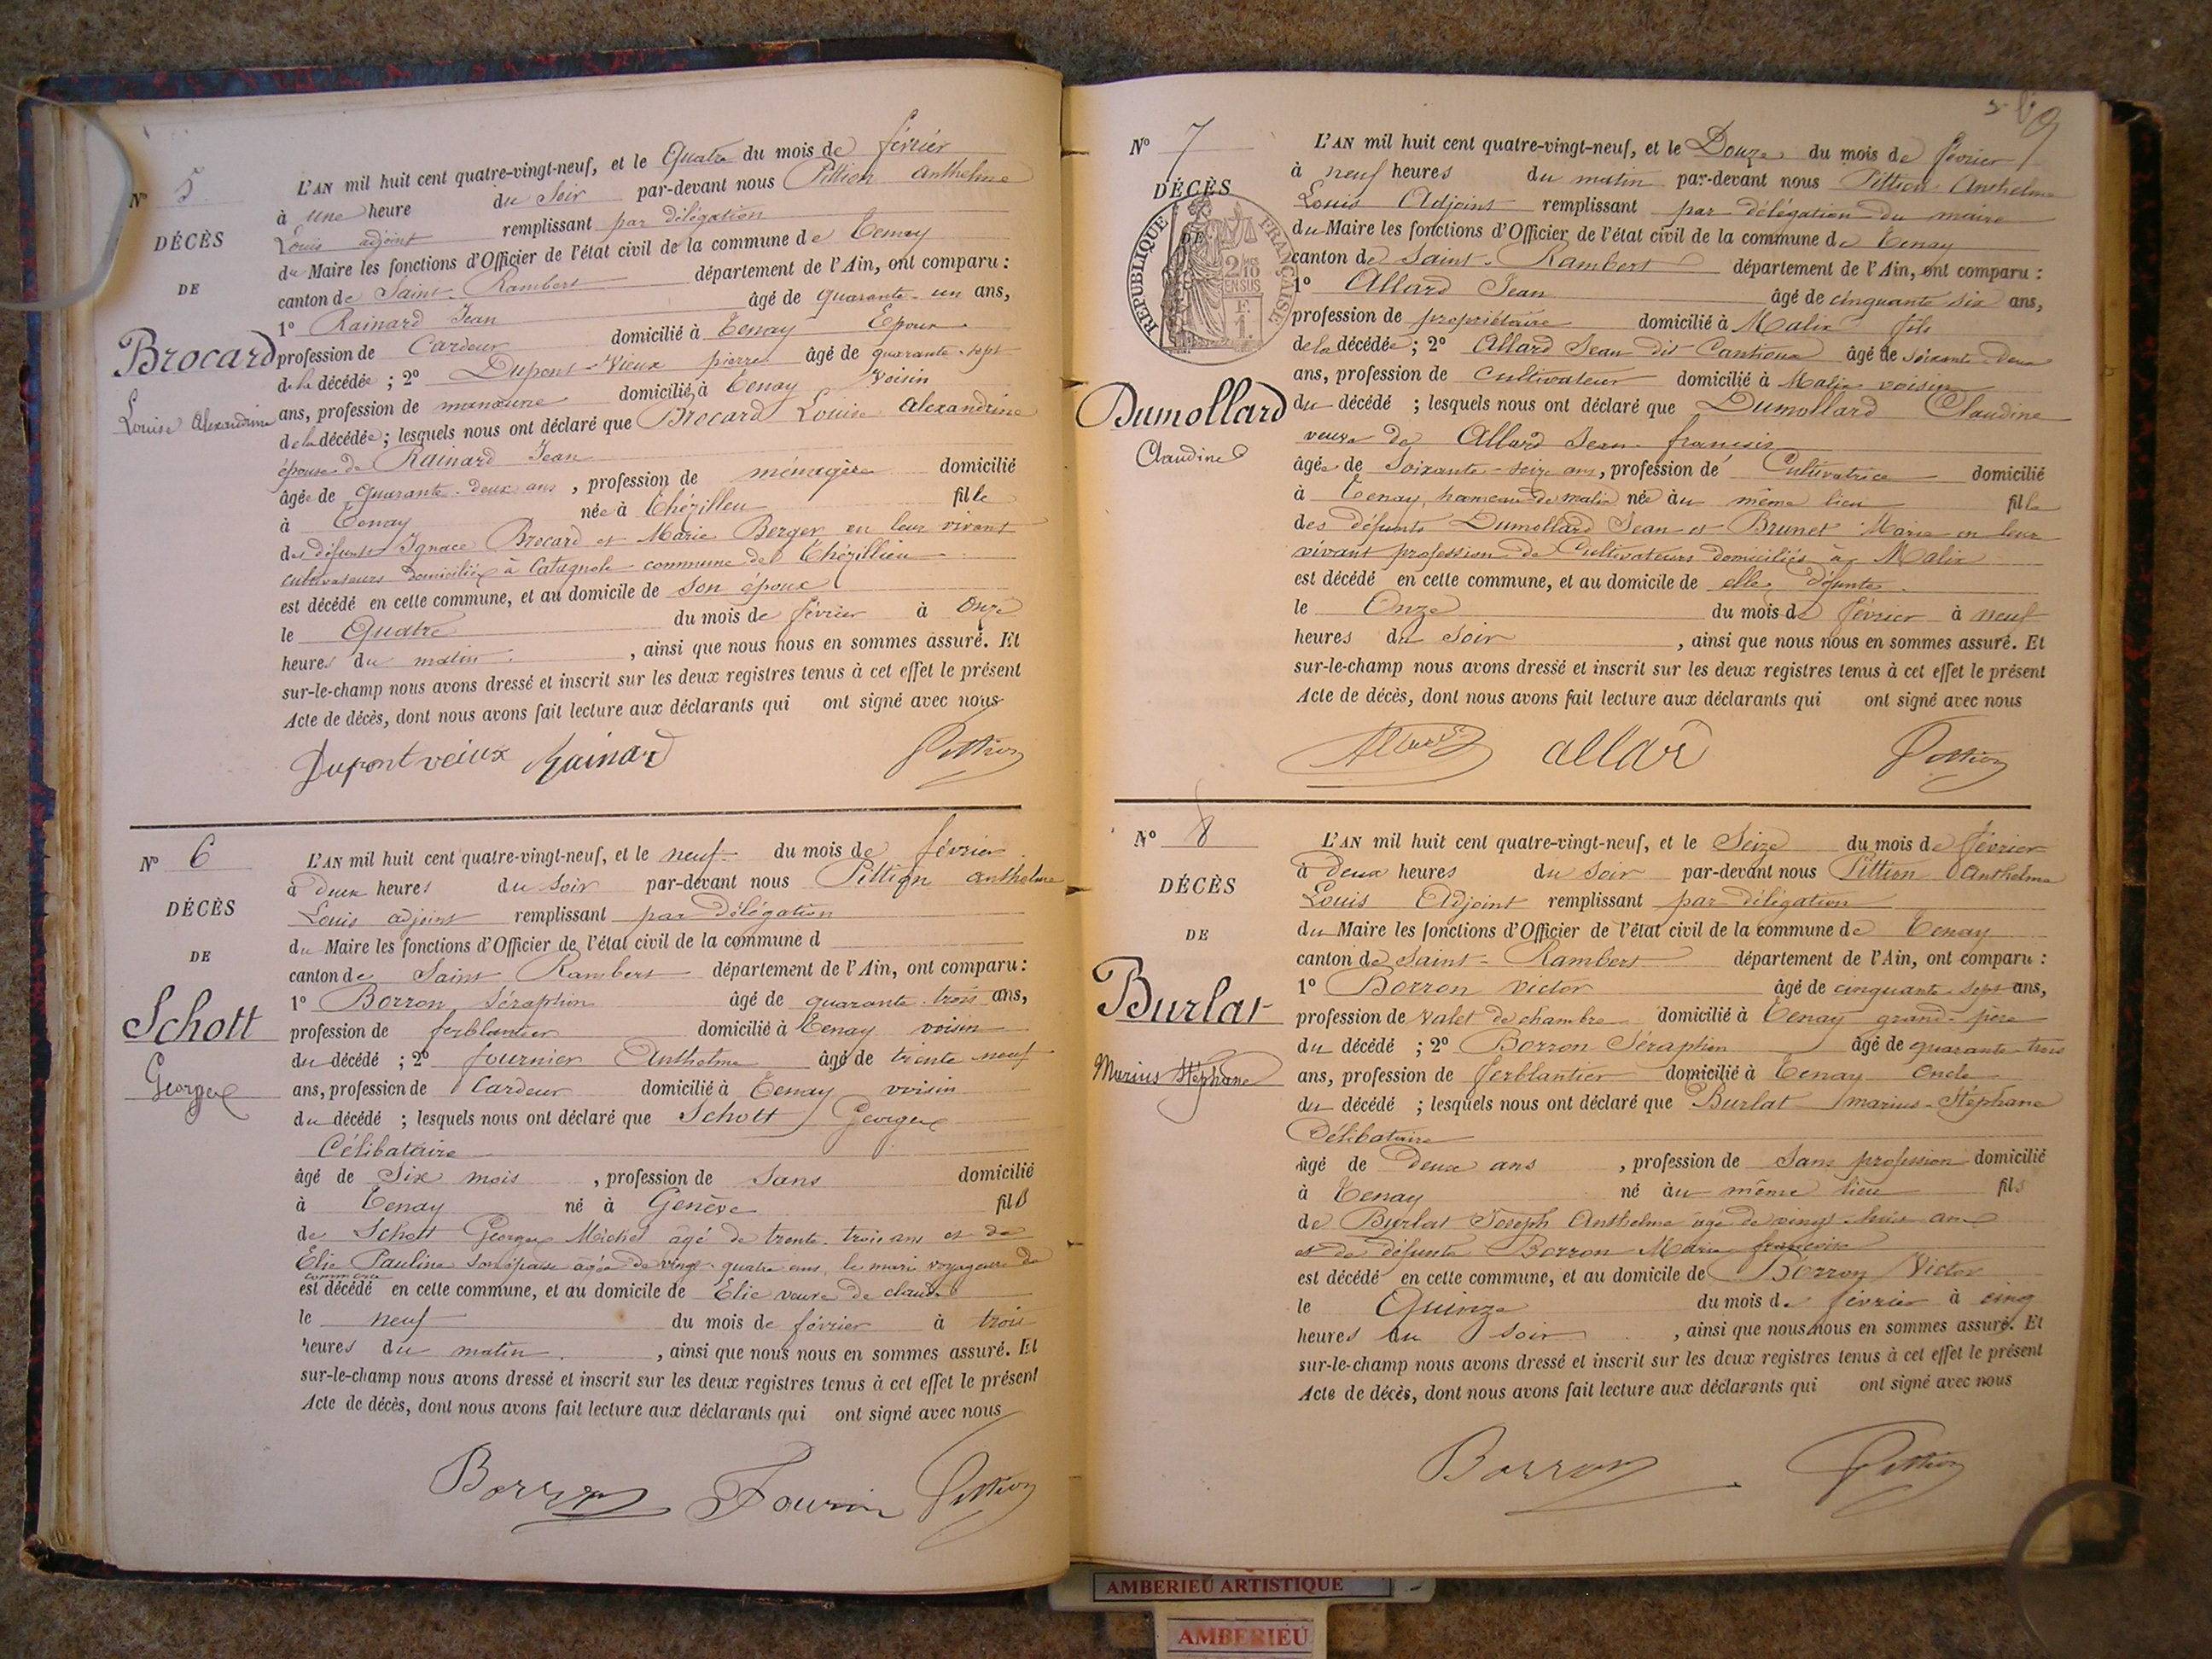 N° 5
DÉCÈS
DE
Brocard
Louise Alexandrine
L'AN mil huit cent quatre-vingt-neuf, et le Quatre du mois de février
à une heure du Soir par-devant nous Pittion Anthelme
Louis adjoint remplissant par délégation
du Maire les fonctions d'Officier de l'état civil de la commune de Tenay
canton de Saint-Rambert département de l'Ain, ont comparu :
1° Rainard Jean âgé de quarante-un ans,
profession de Cardeur domicilié à Tenay Epoux
de la décédée ; 2° Dupont-Vieux pierre âgé de quarante-sept
ans, profession de manœuvre domicilié à Tenay voisin
de la décédée ; lesquels nous ont déclaré que Brocard Louise Alexandrine
épouse de Rainard Jean
âgée de quarante-deux ans, profession de ménagère domicilié
à Tenay née à Thézillieu fille
des défunts Ignace Brocard et Marie Berger en leur vivant
cultivateurs domiciliés à Catagnole commune de Thézillieu
est décédé en cette commune, et au domicile de son époux
le Quatre du mois de février à Onze
heures du matin, ainsi que nous nous en sommes assuré. Et
sur-le-champ nous avons dressé et inscrit sur les deux registres tenus à cet effet le présent
Acte de décès, dont nous avons fait lecture aux déclarants qui ont signé avec nous
Dupont veiux Rainard Pittion
N° 6
DÉCÈS
DE
Schott
Georges
L'AN mil huit cent quatre-vingt-neuf, et le neuf du mois de février
à deux heures du soir par-devant nous Pittion Anthelme
Louis adjoint remplissant par délégation
du Maire les fonctions d'Officier de l'état civil de la commune d
canton de Saint Rambert département de l'Ain, ont comparu :
1° Borron Séraphin âgé de quarante-trois ans,
profession de ferblantier domicilié à Tenay voisin
du décédé ; 2° fournier Anthelme âgé de trente neuf
ans, profession de Cardeur domicilié à Tenay voisin
du décédé ; lesquels nous ont déclaré que Schott Georges
Célibataire
âgé de Six mois, profession de sans domicilié
à Tenay né à Genève fils
de Schott Georges Michel âgé de trente-trois ans et de
Elie Pauline son épouse agée de vingt-quatre ans, le mari voyageur de
commerce
est décédé en cette commune, et au domicile de Elie veuve de claude
le neuf du mois de février à trois
heures du matin, ainsi que nous nous en sommes assuré. Et
sur-le-champ nous avons dressé et inscrit sur les deux registres tenus à cet effet le présent
Acte de décès, dont nous avons fait lecture aux déclarants qui ont signé avec nous
Borron Pittion
9
N° 7
DÉCÈS
DE
RÉPUBLIQUE FRANÇAISE
2/10 EN SUS
F. 1.
Dumollard
Claudine
L'AN mil huit cent quatre-vingt-neuf, et le Douze du mois de février
à neuf heures du matin par-devant nous Pittion Anthelme
Louis Adjoint remplissant par délégation du maire
du Maire les fonctions d'Officier de l'état civil de la commune de Tenay
canton de Saint-Rambert département de l'Ain, ont comparu :
1° Allard Jean âgé de cinquante six ans,
profession de propriétaire domicilié à Malix fils
de la décédée ; 2° Allard Jean dit âgé de soixante deux
ans, profession de cultivateur domicilié à Malix voisin
du décédé ; lesquels nous ont déclaré que Dumollard Claudine
veuve de Allard Jean françois
âgée de Soixante-seize ans, profession de Cultivatrice domicilié
à Tenay, hameau de malix née au même lieu fille
des défunts Dumollard Jean et Brunet Marie en leur
vivant profession de Cultivateurs domiciliés à Malix
est décédé en cette commune, et au domicile de elle défunte
le Onze du mois de février à neuf
heures du soir, ainsi que nous nous en sommes assuré. Et
sur-le-champ nous avons dressé et inscrit sur les deux registres tenus à cet effet le présent
Acte de décès, dont nous avons fait lecture aux déclarants qui ont signé avec nous
Allard allar Pittion
N° 8
DÉCÈS
DE
Burlat
Marius Stéphane
L'AN mil huit cent quatre-vingt-neuf, et le Seize du mois de février
à Deux heures du soir par-devant nous Pittion Anthelme
Louis Adjoint remplissant par délégation
du Maire les fonctions d'Officier de l'état civil de la commune de Tenay
canton de Saint-Rambert département de l'Ain, ont comparu :
1° Borron victor âgé de cinquante-sept ans,
profession de valet de chambre domicilié à Tenay grand-père
du décédé ; 2° Borron Séraphin âgé de quarante-trois
ans, profession de ferblantier domicilié à Tenay Oncle
du décédé ; lesquels nous ont déclaré que Burlat marius-Stéphane
Célibataire
âgé de Deux ans, profession de Sans profession domicilié
à Tenay né au même lieu fils
de Burlat Joseph Anthelme âgé de vingt-huit ans
et de défunte Borron Marie françoise
est décédé en cette commune, et au domicile de Borron Victor
le Quinze du mois de février à cinq
heures du soir, ainsi que nous nous en sommes assuré. Et
sur-le-champ nous avons dressé et inscrit sur les deux registres tenus à cet effet le présent
Acte de décès, dont nous avons fait lecture aux déclarants qui ont signé avec nous
Borron Pittion
AMBERIEU ARTISTIQUE
AMBERIEU